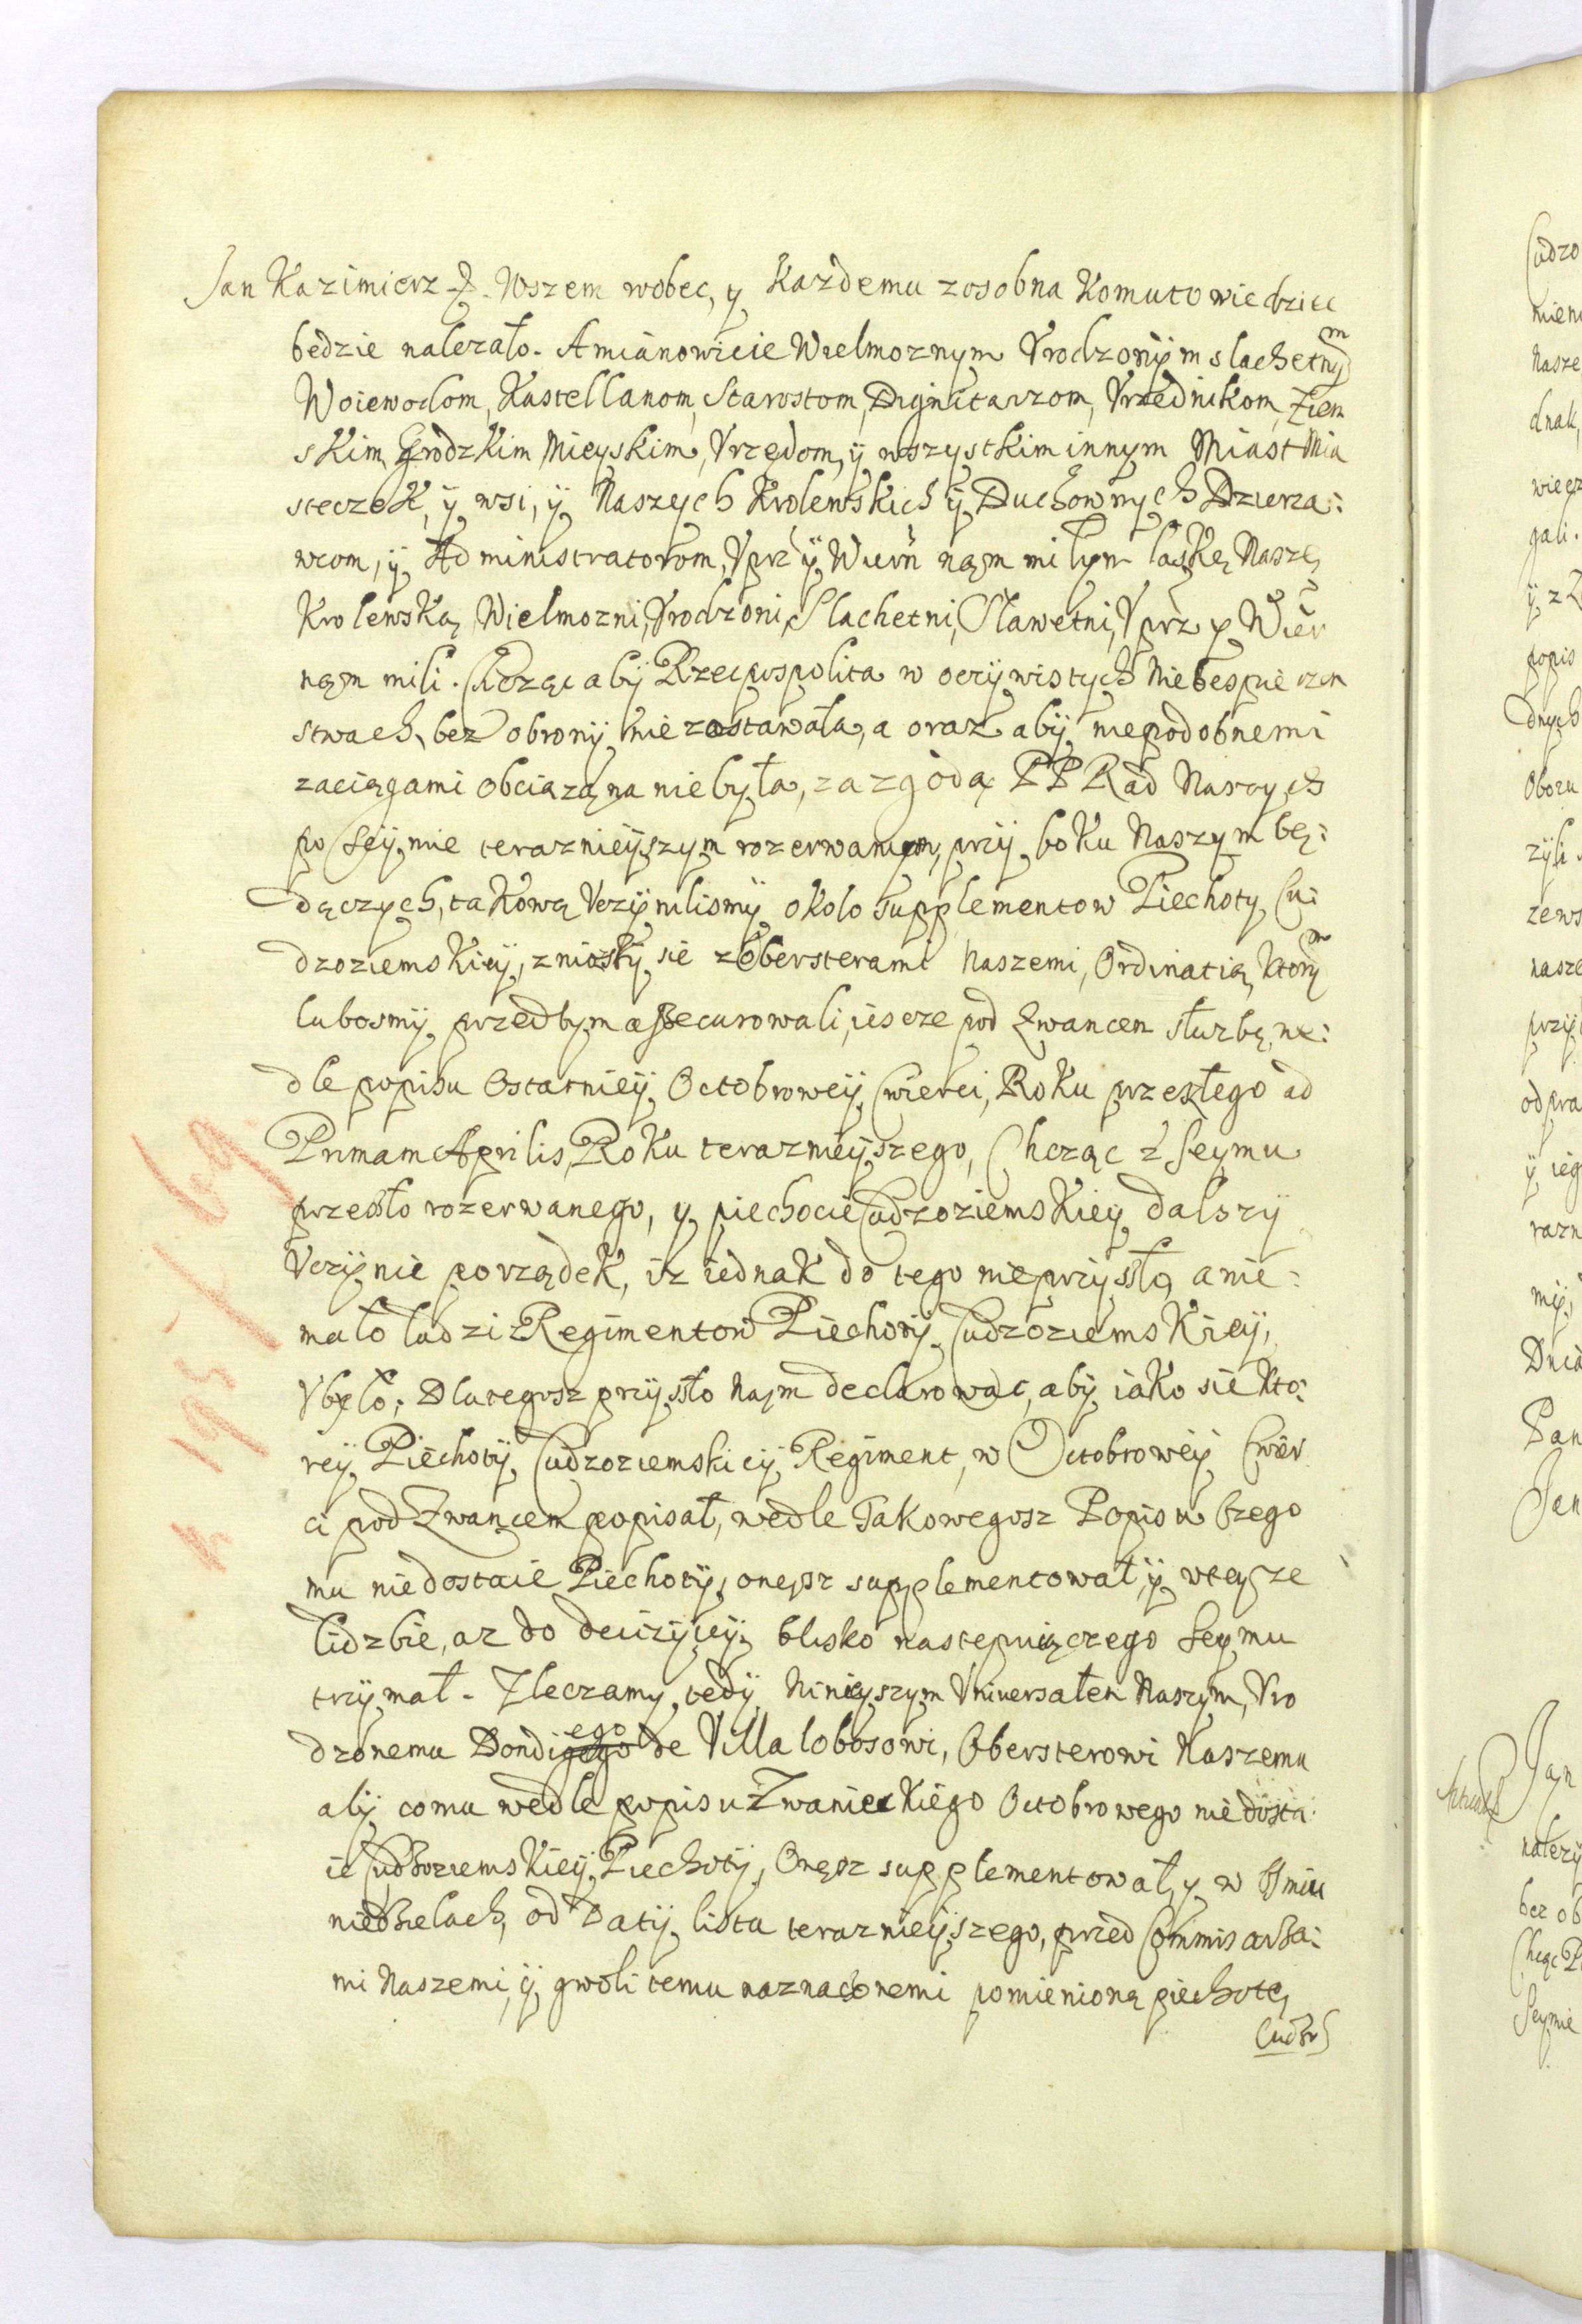 Jan Kazimierz &. Wszem wobec, y Kazdemu zosobna Komuto wiedziec
będzie nalezało. Amianowicie Wielmoznym Vrodzonÿm slachetnym
Woiewodom, Kastellanom, Starostom, Dignitarzom, Vrzednikom, Ziem
skim, Grodzkim Mieyskim, Vrzędom, ÿ wszystkim innym Miast Mia
steczek, ÿ wsi, ÿ Naszych Krolewskich ÿ Duchownych Dzierza:
wcom, ÿ Administratorom, Vprz ÿ Wiern nąm miłym łaskę Naszę
Krolewską, Wielmozni, Vrodzoni, Slachetni, Sławetni, Vprz y Wier
nąm mili. Chcząc abÿ Rzeczpospolita w oczÿwistych Niebespieczen
stwach, bez obronÿ nie zostawała, a oraz abÿ niepodobnemi
zaciągami obciązaną niebyła, za zgodą PP Rad Naszych
po Seÿmie teraznieÿszym rozerwanym, przÿ boku Naszym bę:
dączych, takową Vczÿnilismÿ okolo supplementow Piechoty Cu:
dzoziemskieÿ, zniozsÿ sie z Obersterami Naszemi, Ordinatią, którym
lubosmÿ przedtym assecurowali, iescze pod Zwancem słuzbę, we:
dle popisu Ostatnieÿ Octobroweÿ Cwierci, Roku przeszłego ad
Primam Aprilis, Roku teraznieÿszego, Chcząc z Seymu
przeszło rozerwanego, y piechocie Cudzoziemskiey dalszÿ
Vczÿnic porządek, iz iednak do tego nieprzÿszło, a nie:
mało ludzi z Regimentow Piechotÿ Cudzoziemskieÿ,
Vbÿło; Dlategosz przÿszło nąm declarowac, abÿ iako sie kto:
reÿ Piechotÿ Cudzoziemskieÿ Regiment, w Octobroweÿ Cwier
ci pod Zwancem popisał, wedle Takowegosz Popisu czego
mu niedostaie Piechotÿ, onęsz supplementował, ÿ wteÿze
liczbie, az do decizÿeÿ blisko nastepuiączego Seymu
trzÿmał. Zleczamy tedÿ Ninieyszym Vniversałem Naszym, Vro
dzonemu Dondiego de Villa lobosowi, Obersterowi Naszemu
abÿ comu wedle popisu Zwanieckiego Octobrowego niedosta
ie Cudzoziemskieÿ Piechotÿ, Onęsz supplementował, y w Osmiu
niedzielach, od Datÿ listu teraznieÿszego, przed Commisarza:
mi Naszemi, ÿ gwoli temu naznaczonemi pomienioną piechotę,
Cudzo